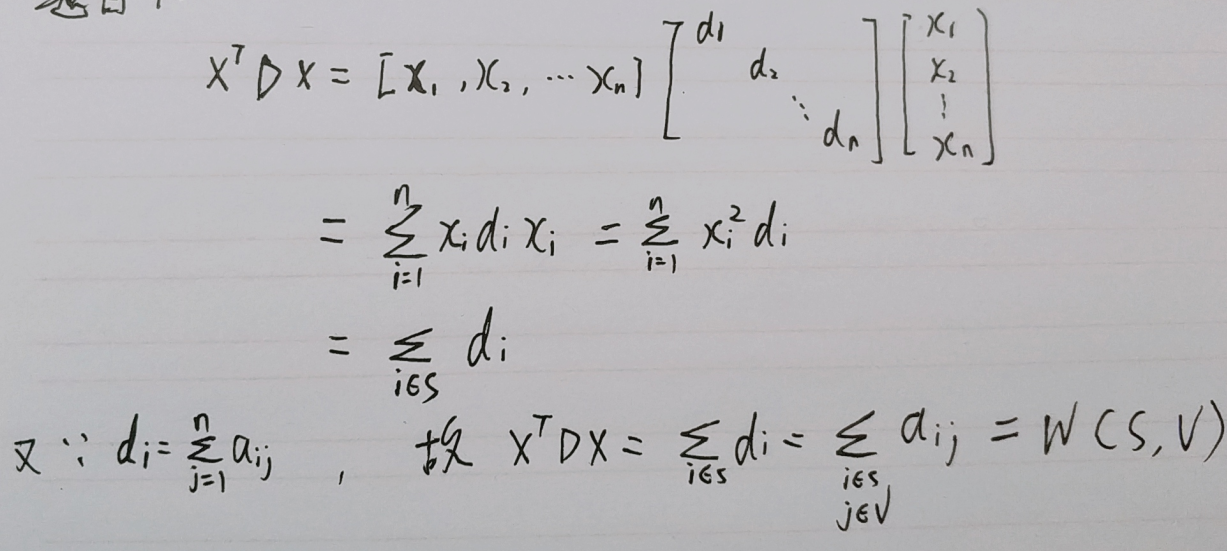 X^T D X = [x₁, x₂, ⋯ xₙ] [d₁ d₂ ⋱ dₙ] [x₁ x₂ ⋮ xₙ]
= ∑_{i=1}^{n} xᵢ dᵢ xᵢ = ∑_{i=1}^{n} xᵢ² dᵢ
= ∑_{i∈S} dᵢ
又∵ dᵢ = ∑_{j=1}^{n} aᵢⱼ , 故 X^T D X = ∑_{i∈S} dᵢ = ∑_{i∈S j∈V} aᵢⱼ = W(S,V)